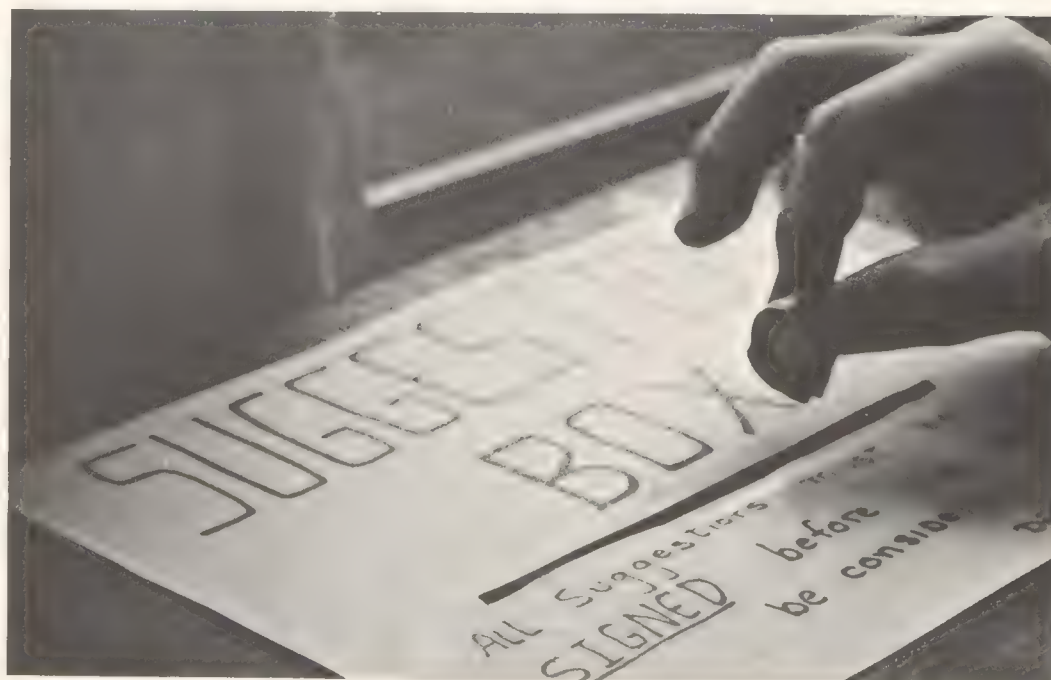 SUGGES
BOX
ALL Suggestions
SIGNED before
be conside